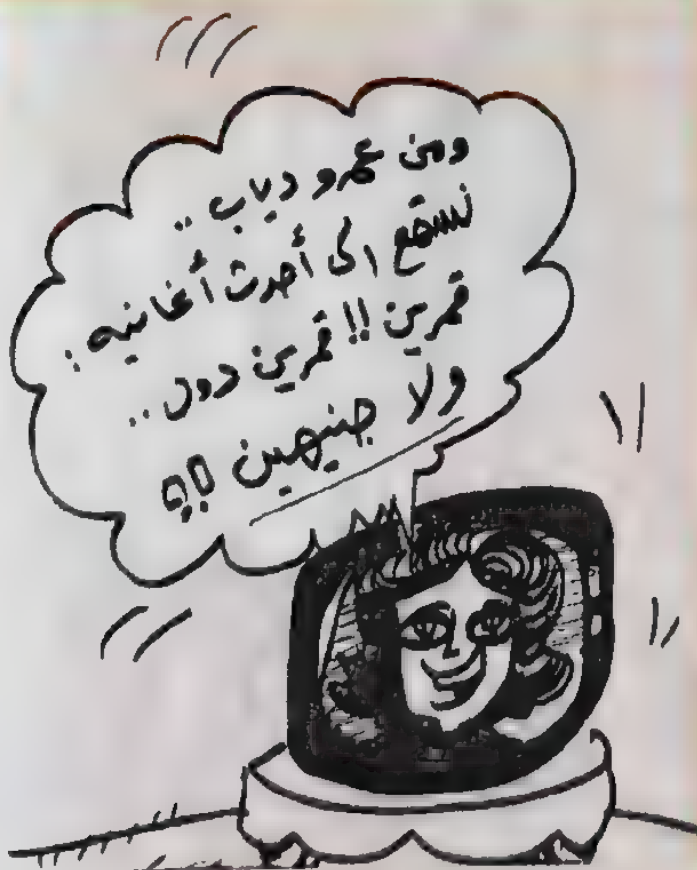 ومن عمرو دياب ..
نستمع إلى أحدث أغانيه :
قمرين !! قمرين دول ..
ولا جنيهين !؟